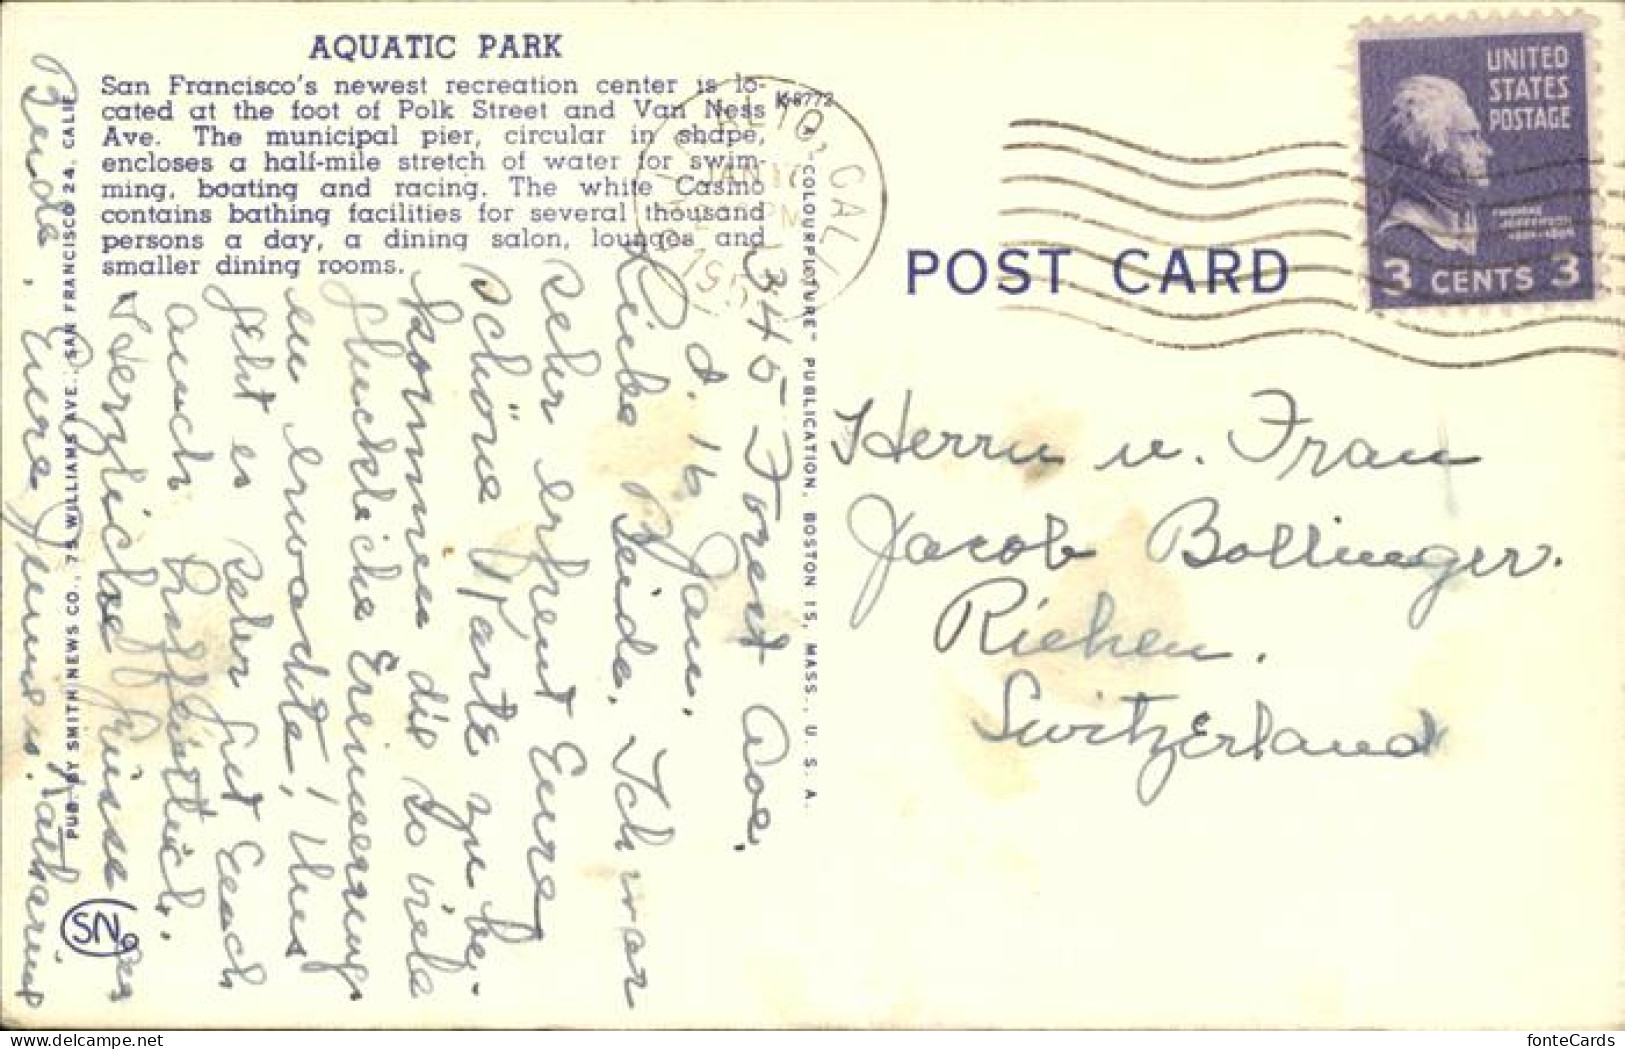 AQUATIC PARK
San Francisco's newest recreation center is lo-
cated at the foot of Polk Street and Van Ness
Ave. The municipal pier, circular in shape,
encloses a half-mile stretch of water for swim-
ming, boating and racing. The white Casino
contains bathing facilities for several thousand
persons a day, a dining salon, lounges and
smaller dining rooms.
K8772
ALTO, CALIF
JAN 16
PM
195
UNITED
STATES
POSTAGE
THOMAS
JEFFERSON
3 CENTS 3
POST CARD
"COLOURPICTURE" PUBLICATION, BOSTON 15, MASS., U. S. A.
PUB. BY SMITH NEWS CO., 75 WILLIAMS AVE., SAN FRANCISCO 24, CALIF.
SN
345 Forest Ave.
d. 16 Jan.
Liebe Beide, Ich war
sehr erfreut Eure
schöne Karte zu be-
kommen die so viele
glückliche Erinnerung
en erwachte! Uns
geht es sehr gut Euch
auch hoffentlich.
Herzliche Grüsse an
Beide. Eure Jimmie u. Katharine
Herrn u. Frau
Jacob Bollinger.
Riehen.
Switzerland
fonteCards